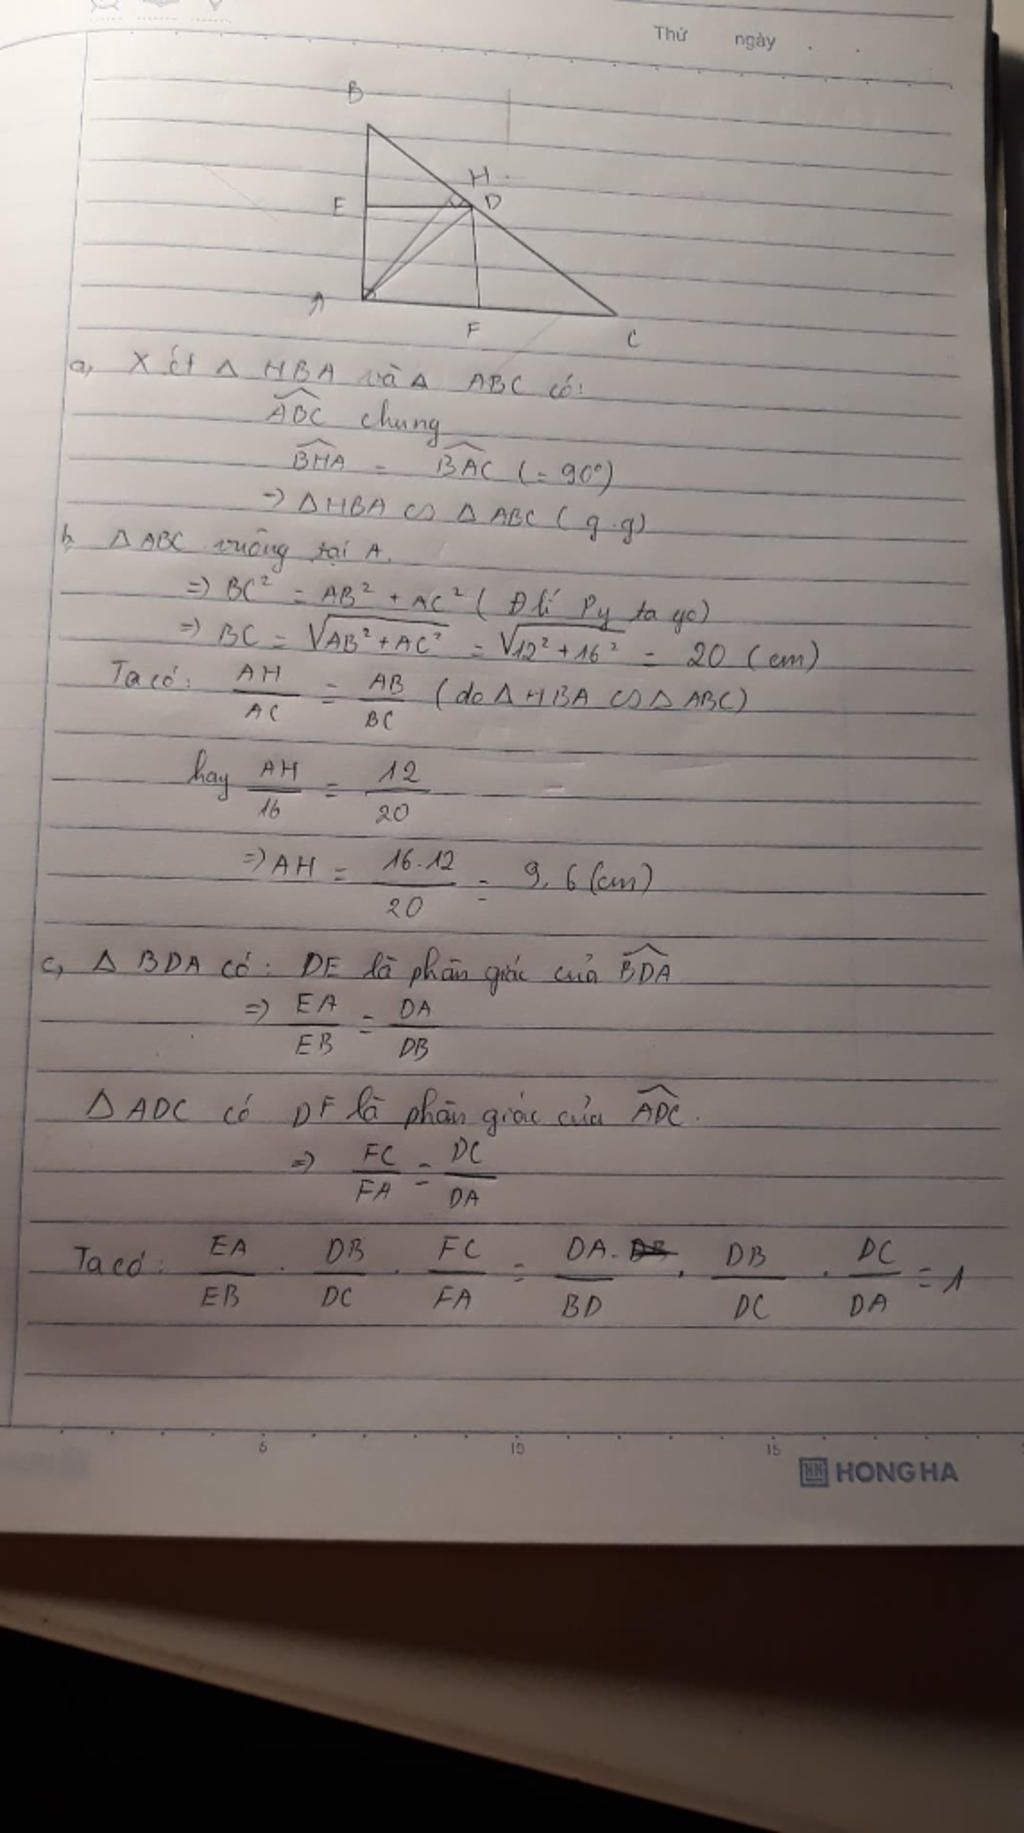 Thứ ngày . .
B
H
E D
A
F C
a, Xét △ HBA và △ ABC có:
ABC chung
BHA = BAC (= 90°)
=> △HBA ∽ △ABC (g.g)
b, △ABC vuông tại A.
=> BC² = AB² + AC² ( Đ lí Py ta go)
=> BC = √AB² + AC² = √12² + 16² = 20 (cm)
Ta có: AH/AC = AB/BC (do △HBA ∽ △ABC)
hay AH/16 = 12/20
=> AH = 16.12/20 = 9,6 (cm)
c, △ BDA có: DE là phân giác của BDA
=> EA/EB = DA/DB
△ADC có DF là phân giác của ADC.
=> FC/FA = DC/DA
Ta có: EA/EB . DB/DC . FC/FA = DA/BD . DB/DC . DC/DA = 1
5 10 15
HONG HA